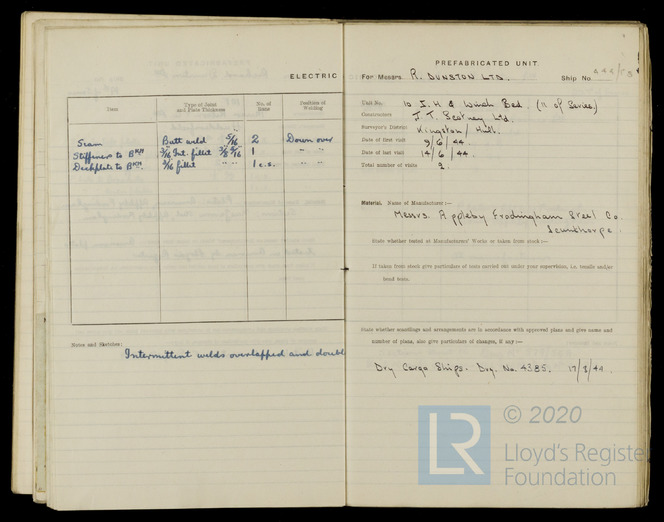 ELECTRIC
Item
Type of Joint and Plate Thickness
No. of Items
Position of Welding
Seam Butt weld 5/16" 2 Down over
Stiffeners to BKH 3/16 Int. fillet 3/8 5/16 1 " "
Deckplate to BKH. 3/16 fillet " " 1 c.s. " "
Notes and Sketches:
Intermittent welds overlapped and double
PREFABRICATED UNIT
For Messrs. R. DUNSTON LTD. Ship No.
Unit No. 10 I.H & Winch Bed. (11 of Series)
Constructors J. T. Ltd.
Surveyor's District Kingston / Hull.
Date of first visit 9/6/44.
Date of last visit 14/6/44.
Total number of visits 2.
Material. Name of Manufacturer :—
Messrs. Appleby Frodingham Steel Co.
Scunthorpe.
State whether tested at Manufacturers' Works or taken from stock :—
If taken from stock give particulars of tests carried out under your supervision, i.e. tensile and/or
bend tests.
State whether scantlings and arrangements are in accordance with approved plans and give name and
number of plans, also give particulars of changes, if any :—
Dry Cargo Ships. Drg. No. 4385. 17/3/44.
LR
© 2020
Lloyd's Register
Foundation